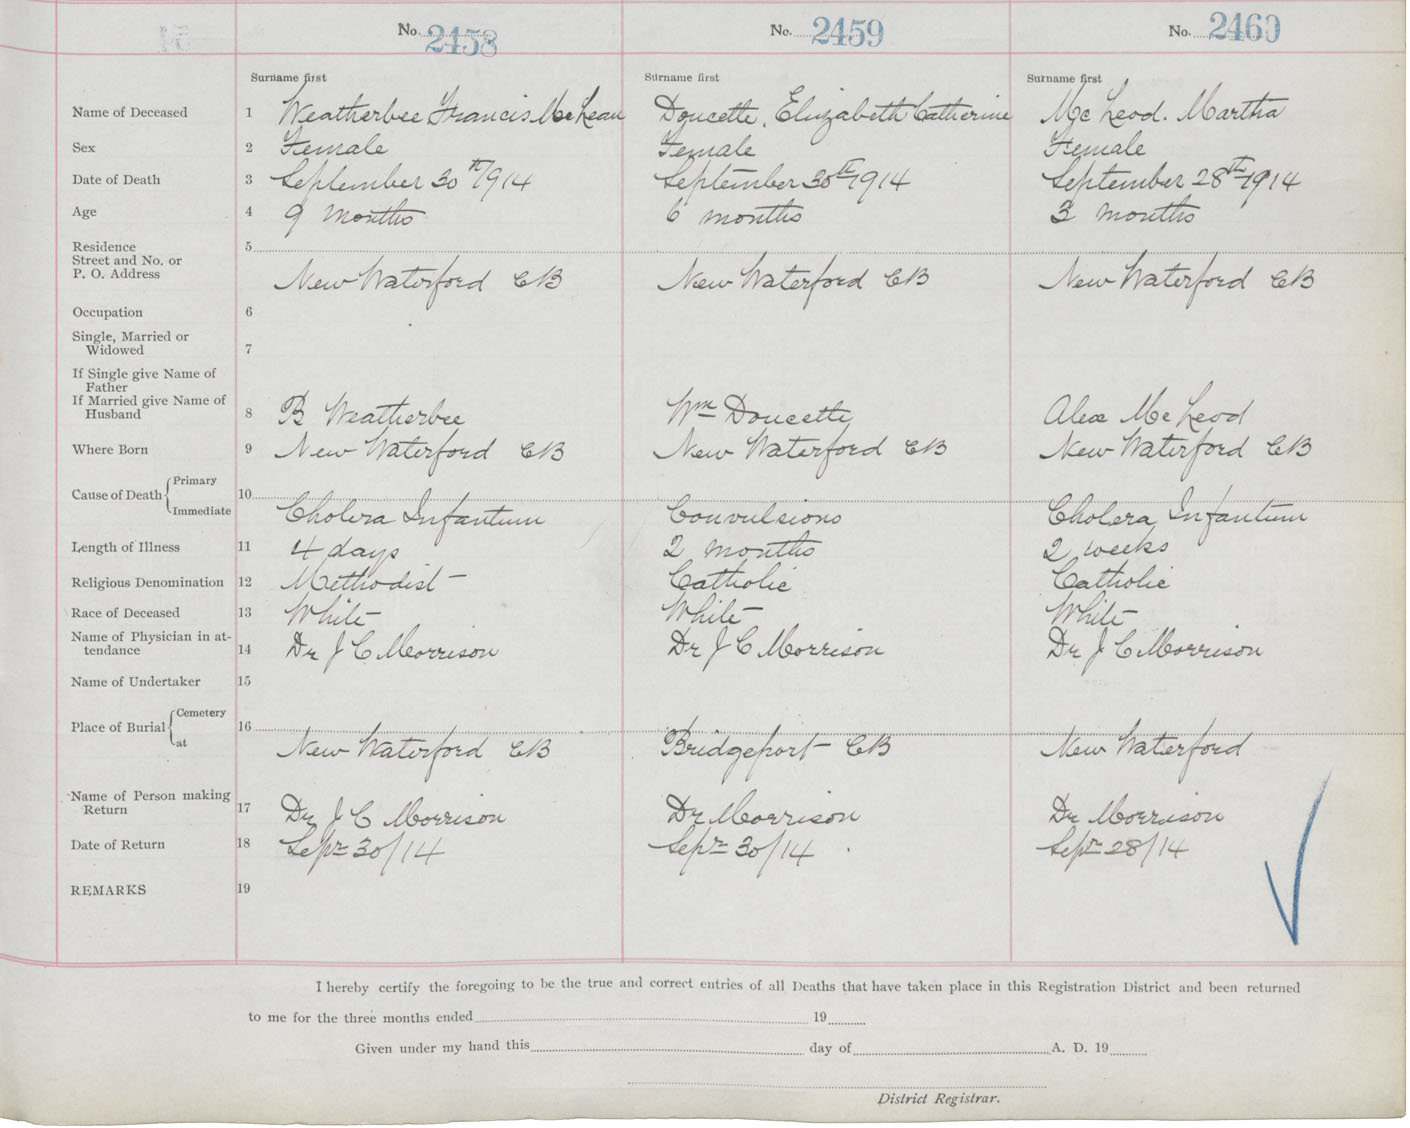 No. 2458 No. 2459 No. 2460
Surname first Surname first Surname first
Name of Deceased 1 Weatherbee Francis McLean Doucette, Elizabeth Catherine McLeod. Martha
Sex 2 Female Female Female
Date of Death 3 September 30th 1914 September 30th 1914 September 28th 1914
Age 4 9 months 6 months 3 months
Residence 5
Street and No. or
P. O. Address New Waterford CB New Waterford CB New Waterford CB
Occupation 6
Single, Married or
Widowed 7
If Single give Name of
Father
If Married give Name of
Husband 8 B Weatherbee Wm Doucette Alex McLeod
Where Born 9 New Waterford CB New Waterford CB New Waterford CB
Primary
Cause of Death 10
Immediate Cholera Infantum Convulsions Cholera Infantum
Length of Illness 11 4 days 2 months 2 weeks
Religious Denomination 12 Methodist Catholic Catholic
Race of Deceased 13 White White White
Name of Physician in at-
tendance 14 Dr J C Morrison Dr J C Morrison Dr J C Morrison
Name of Undertaker 15
Cemetery
Place of Burial 16
at New Waterford CB Bridgeport CB New Waterford
Name of Person making
Return 17 Dr J C Morrison Dr Morrison Dr Morrison
Date of Return 18 Sepr 30/14 Sepr 30/14 Sepr 28/14
REMARKS 19
I hereby certify the foregoing to be the true and correct entries of all Deaths that have taken place in this Registration District and been returned
to me for the three months ended 19
Given under my hand this day of A. D. 19
District Registrar.